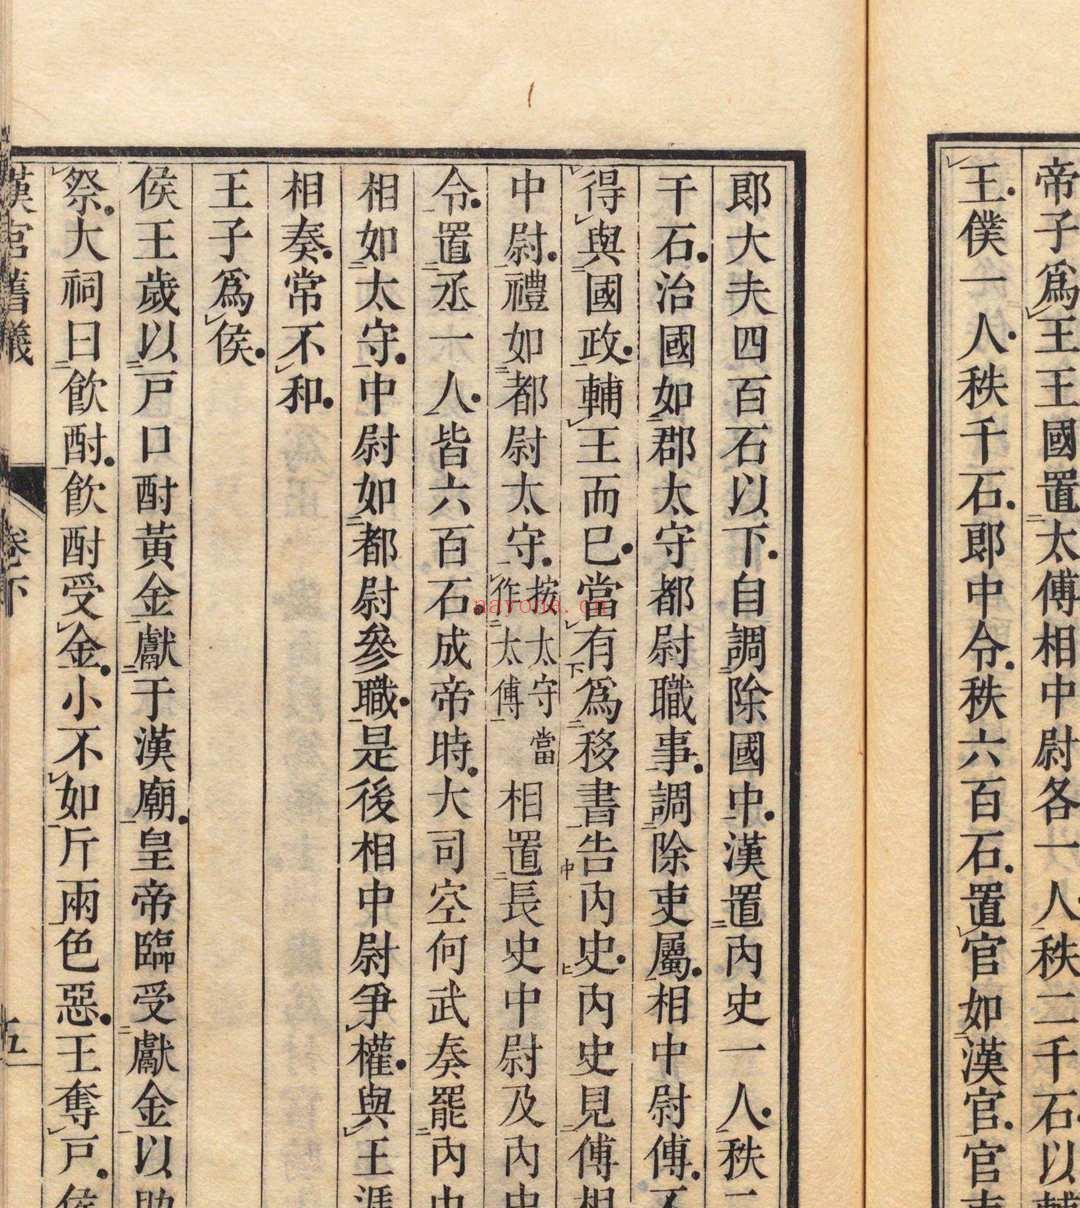 帝子爲王王國置太傅相中尉各一人秩二千石以輔
王僕一人秩千石郎中令秩六百石置官如漢官官吏
郎大夫四百石以下自調除國中漢置內史一人秩二
千石治國如郡太守都尉職事調除吏屬相中尉傅不
得與國政輔王而已當有爲移書告內史內史見傅相
中尉禮如都尉太守按太守當作太傅相置長史中尉及內史
令置丞一人皆六百石成帝時大司空何武奏罷內史
相如太守中尉如都尉參職是後相中尉爭權與王遞
相奏常不和
王子爲侯
侯王歲以戶口酎黃金獻于漢廟皇帝臨受獻金以助
祭大祠曰飲酎飲酎受金小不如斤兩色惡王奪戶侯
漢官舊儀 卷下 五
nayona.cn